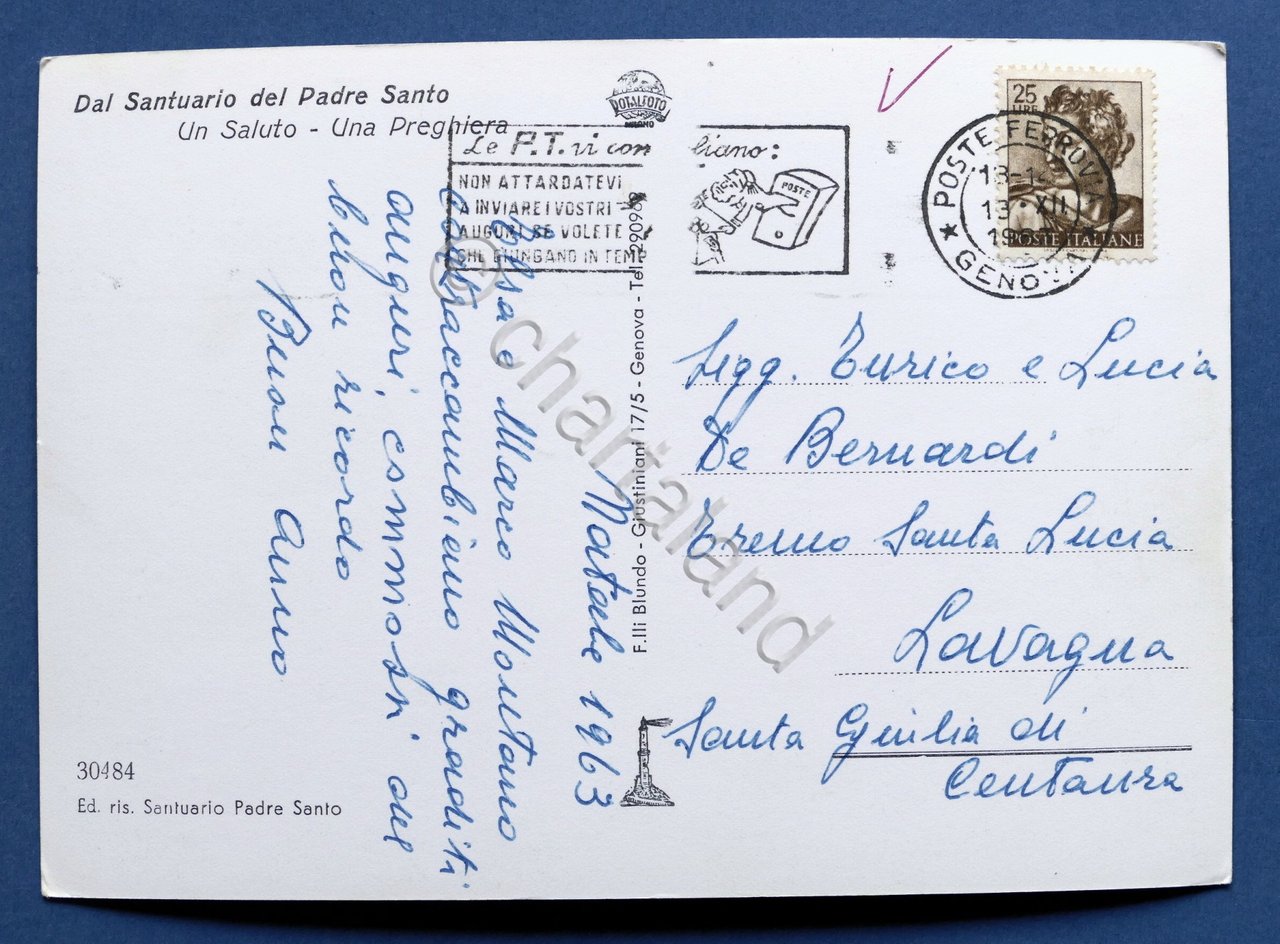 Dal Santuario del Padre Santo
Un Saluto - Una Preghiera
ROTALFOTO
MILANO
Le P.T. vi con gliano:
NON ATTARDATEVI
A INVIARE I VOSTRI
AUGURI SE VOLETE
CHE GIUNGANO IN TEMP
POSTE
25
LIRE
POSTE ITALIANE
POSTE FERROV
13·XII
GENOVA
Natale 1963
Elsa e Marco Montano
contraccambiano graditi
auguri, commossi del
buon ricordo
Buon Anno
F.lli Blundo - Giustiniani 17/5 - Genova - Tel. 290962
Sigg. Eurico e Lucia
De Bernardi
Eremo Santa Lucia
Lavagna
Santa Giulia di
Centaura
30484
Ed. ris. Santuario Padre Santo
© chartaland